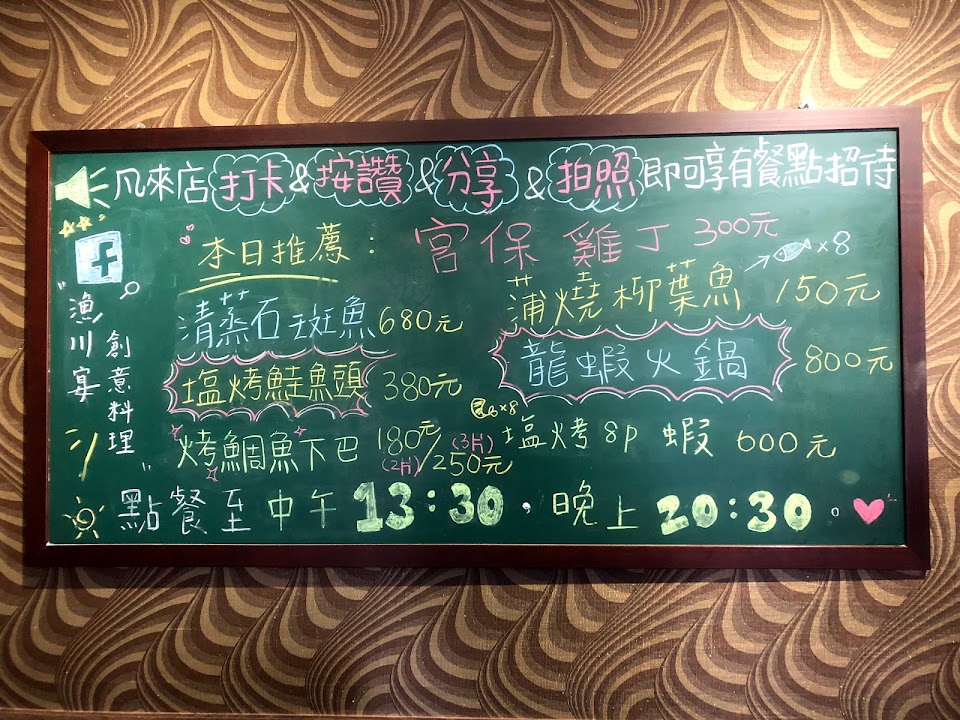 凡來店打卡&按讚&分享&拍照即可享有餐點招待
f
"漁川宴
創意料理"
本日推薦：宮保雞丁 300元
清蒸石斑魚 680元
蒲燒柳葉魚 150元
×8
塩烤鮭魚頭 380元
龍蝦火鍋 800元
烤鯛魚下巴 180元(2片)/250元(3片)
塩烤8P蝦 600元
×8
點餐至中午13:30，晚上20:30。